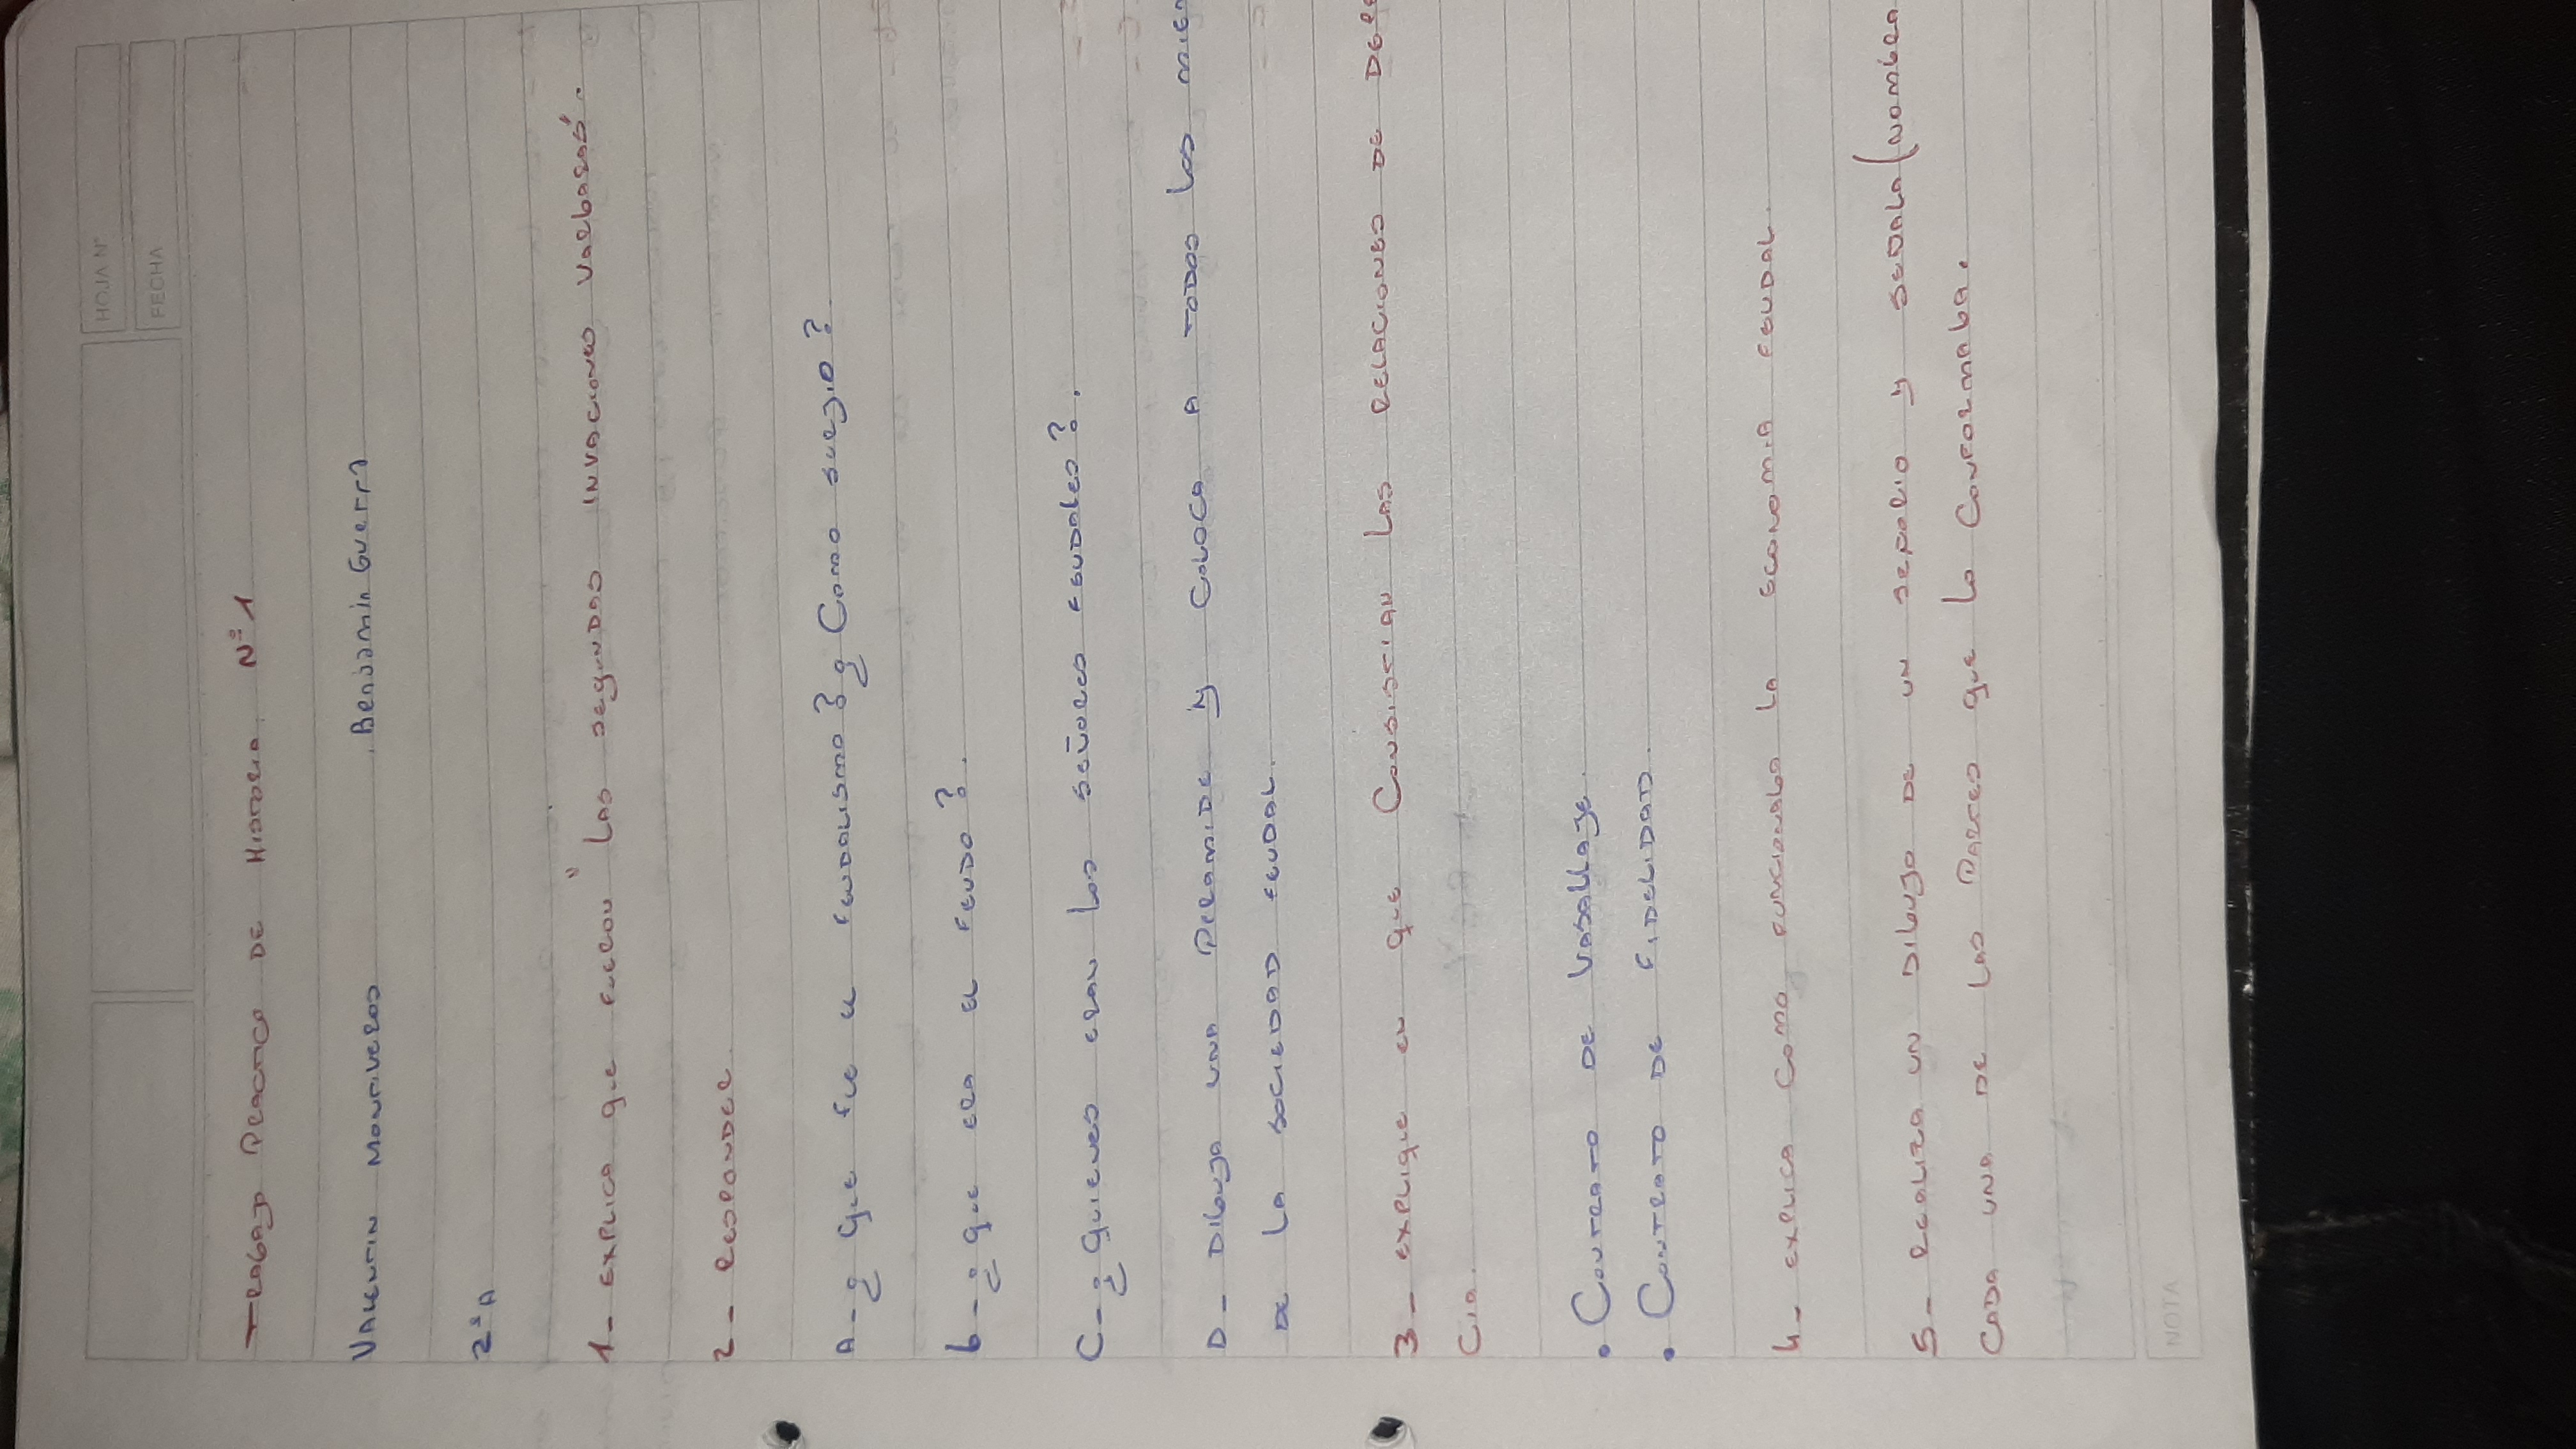 HOJA N°
FECHA
Trabajo Practico de Historia N°1
Valentin Montiveros Benjamin Guerra
2°A
1- explica que fueron las segundas invaciones varbaras.
2- Responder.
A-¿ que fue el feudalismo?¿Como surgio?
b-¿ que era el feudo?.
C-¿quienes eran los señores feudales?.
D- Dibuja una Piramide y Coloca a todos los mien
de la sociedad feudal.
3- explique en que Consistian las relaciones de Depe
cia.
• Contrato de Vasallaje.
• Contrato de Fidelidad.
4- explica como funcionaba la economia feudal.
5- realiza un dibujo de un señorio y señala(nombra
Cada una de las Partes que lo Conformaba.
NOTA